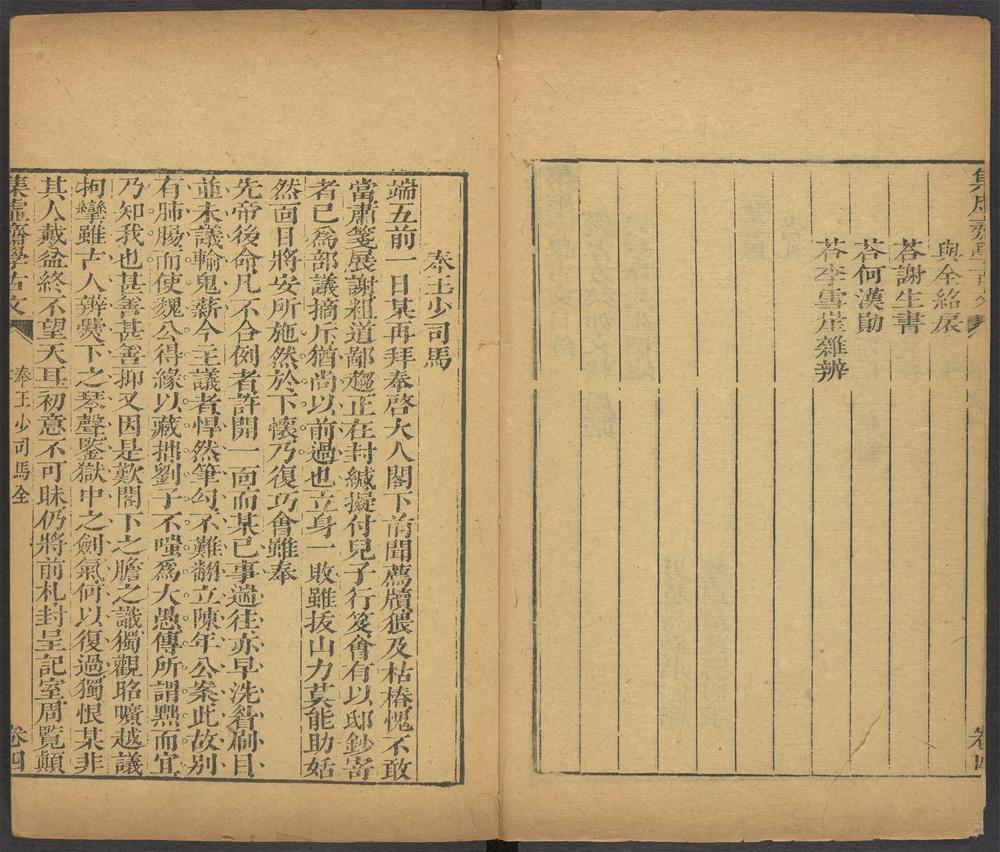 集虛齋學古文
卷四
與全紹展
荅謝生書
荅何漢勛
荅李雪崖雜辨
奉王少司馬
端五前一日某再拜奉啓大人閣下前聞薦牘猥及枯樁愧不敢
當肅箋展謝粗道鄙趨正在封緘擬付兒子行笈會有以邸鈔寄
者已爲部議摘斥猶尚以前過也立身一敗雖拔山力莫能助姑
然面目將安所施然於下懷乃復巧會雖奉
先帝後命凡不合例者許開一面而某已事過往亦早洗眢刷目
並未議輸鬼薪今主議者悍然筆勾不難翻立陳年公案此故別
有肺腸而使魏公得緣以藏拙劉子不嗤爲大愚傳所謂黠而宜
乃知我也甚善甚善抑又因是歎閣下之膽之識獨觀昭曠越議
拘攣雖古人辨㸑下之琴聲鑒獄中之劍氣何以復過獨恨某非
其人戴盆終不望天耳初意不可昧仍將前札封呈記室周覽顛
集虛齋學古文
奉王少司馬全
卷四